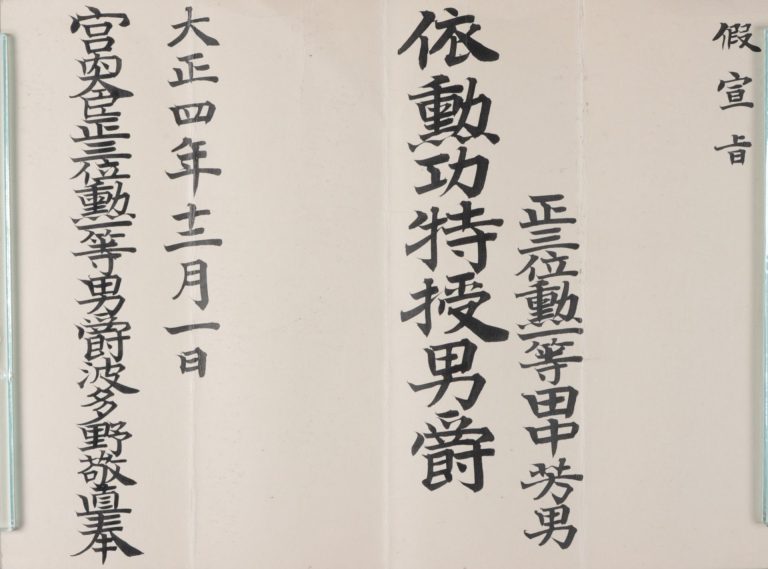 假宣旨
正三位勲一等田中芳男
依勲功特授男爵
大正四年十二月一日
宮内大臣正三位勲一等男爵波多野敬直奉